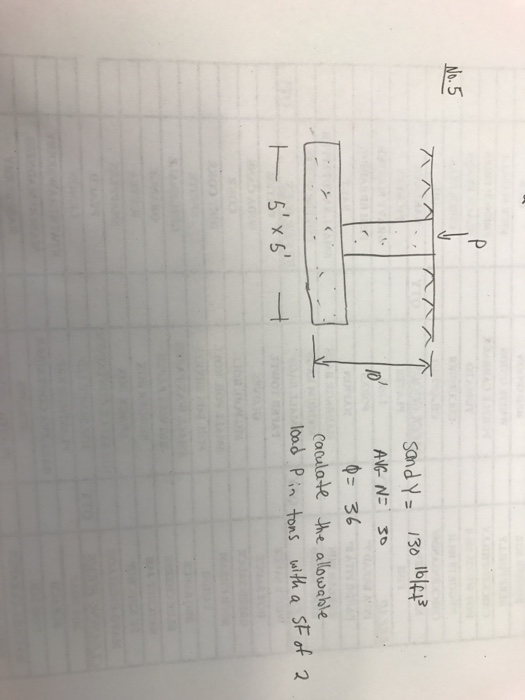 No. 5
P
10'
5' x 5'
Sand γ = 130 lb/ft³
AVG N = 30
φ = 36
caculate the allowable
load P in tons with a SF of 2